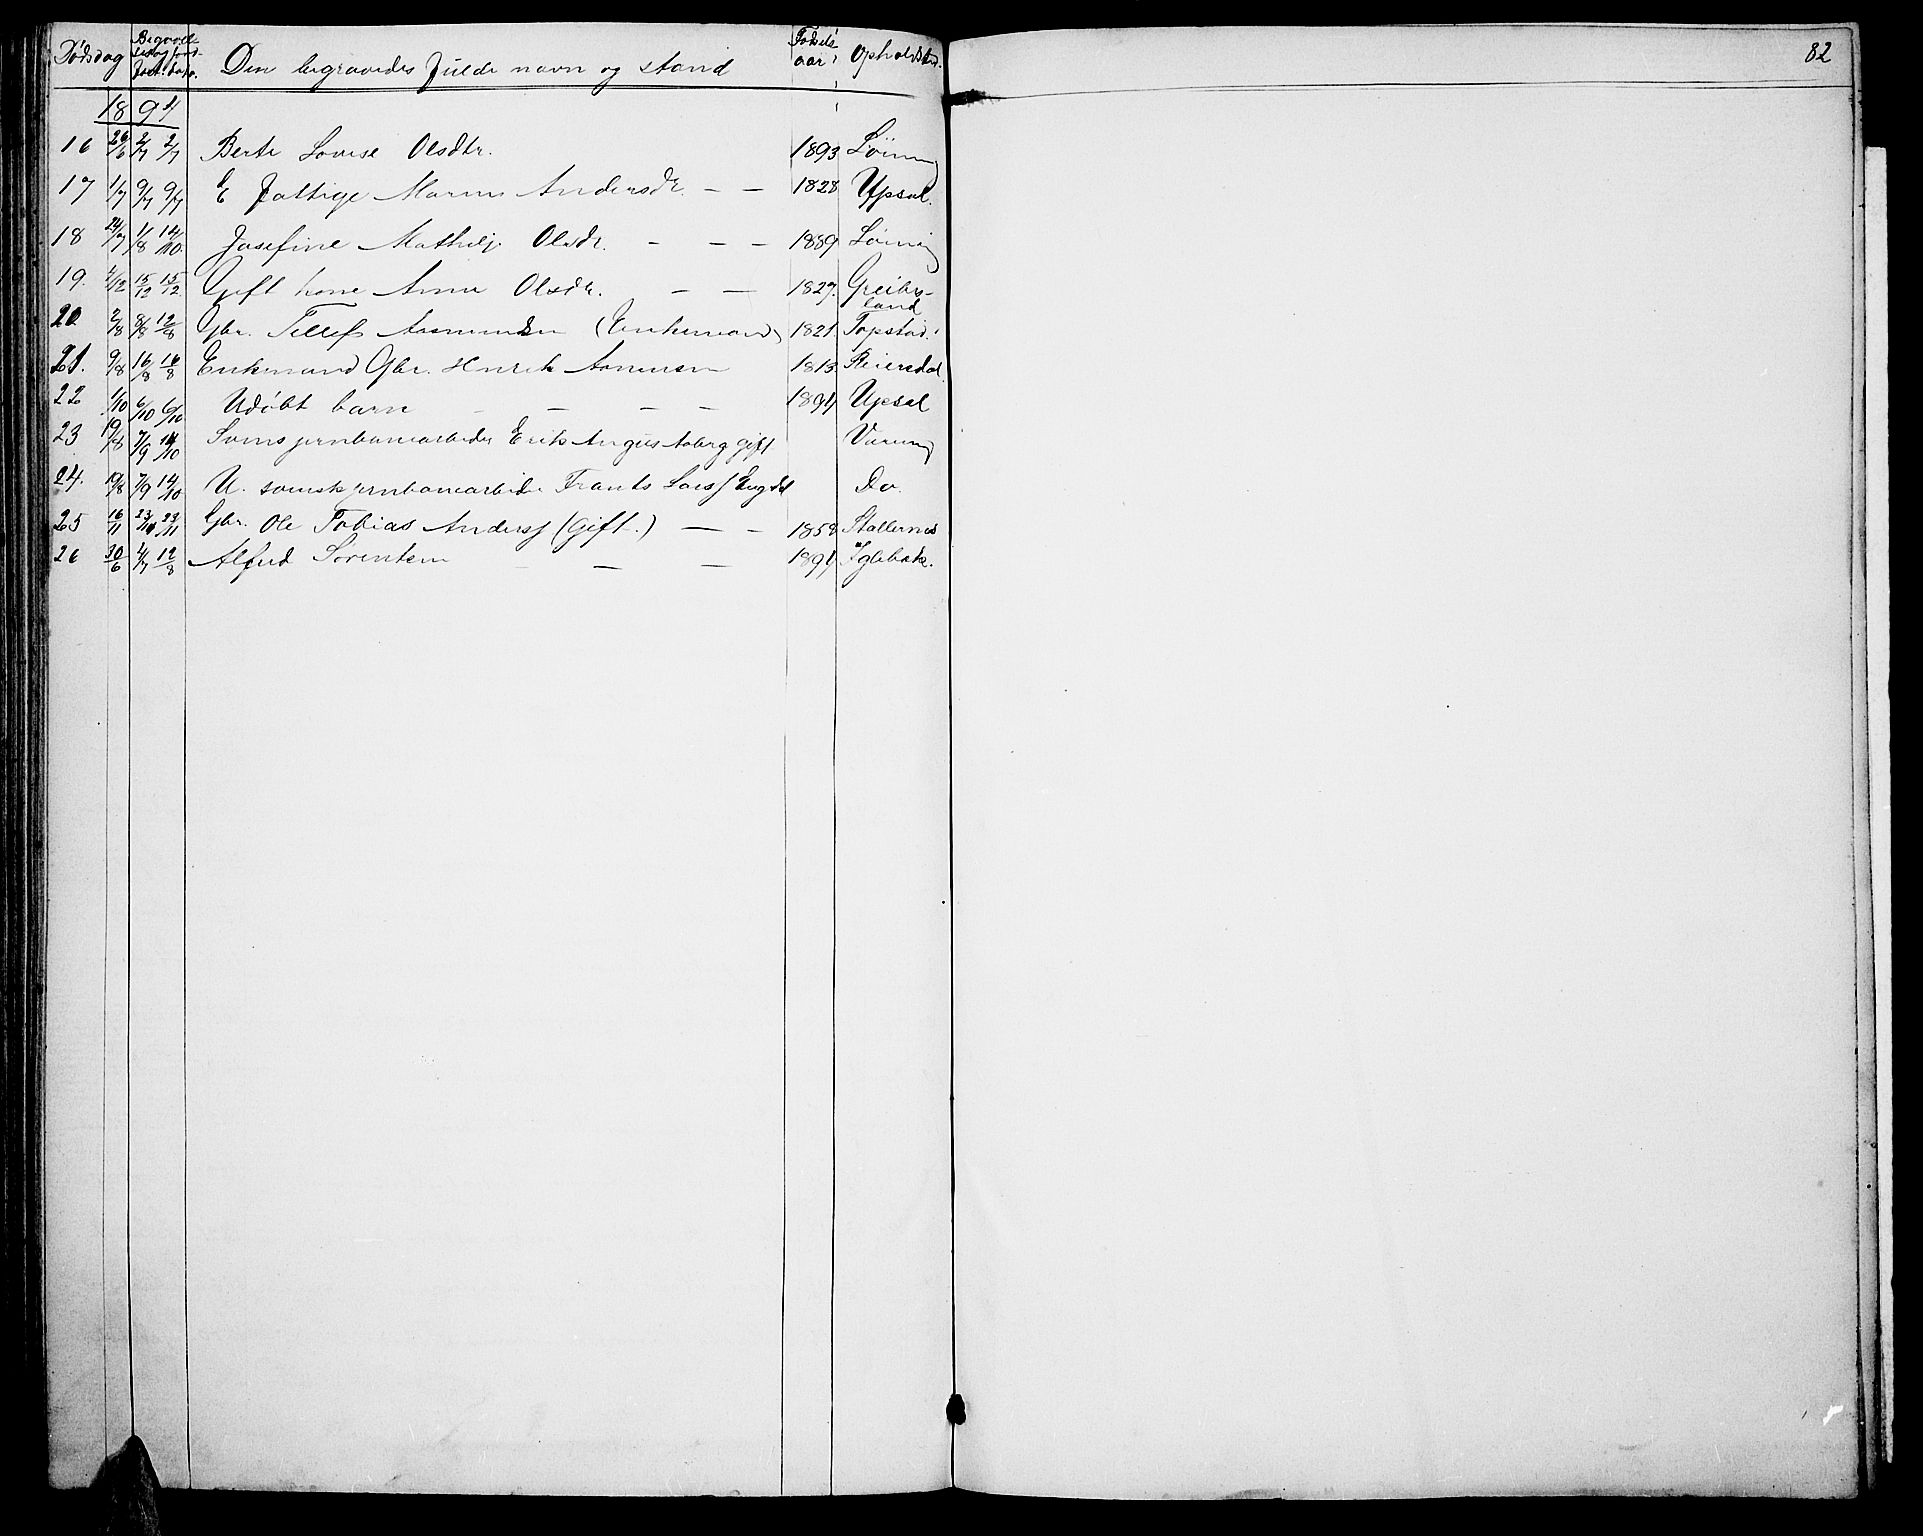 Dødsdag Begravelsesdag Jordf. Den begravedes fulde navn og stand Fødselsaar Opholdssted. 82
1894
16 26/6 2/7 2/7 Berte Lovise Olsdtr. 1893 Løining
17 1/7 9/7 9/7 E fattige Maren Andersdt. — — 1828 Upsal.
18 24/7 1/8 14/10 Josefine Mathilj. Olsdt. — — — 1889 Løining
19. 4/12 15/12 15/12 Gift kone Anne Olsdt. — — 1827. Greibsland
20 2/8 8/8 12/8 Gbr. Tellef Aasmundsen (Enkemand) 1821. Topstad.
21. 9/8 16/8 16/8 Enkemand Gbr. Henrik Aanensen 1813. Reiersdal.
22 1/10 6/10 6/10 Udøbt barn — — — — 1894 Upsal
23 19/8 7/9 14/10 Svensk jernbanearbeider Erik August Aaberg gift
24. 19/8 7/9 14/10 U. svensk jernbanearbeider Frants Larss Engdal Do.
25 16/11 23/11 23/11 Gbr. Ole Tobias Anderss (gift.) — — 1858 Stallernes
26 30/6 4/7 12/8 Alfred Sørensen — — — 1894 Iglebæk.